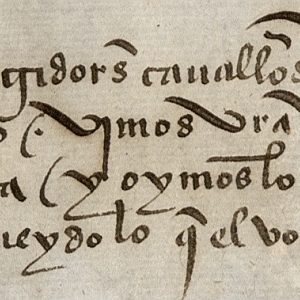 gidors cauallos
( . vimos vra
a ( y oymos lo
ueydo lo q̃ el vo